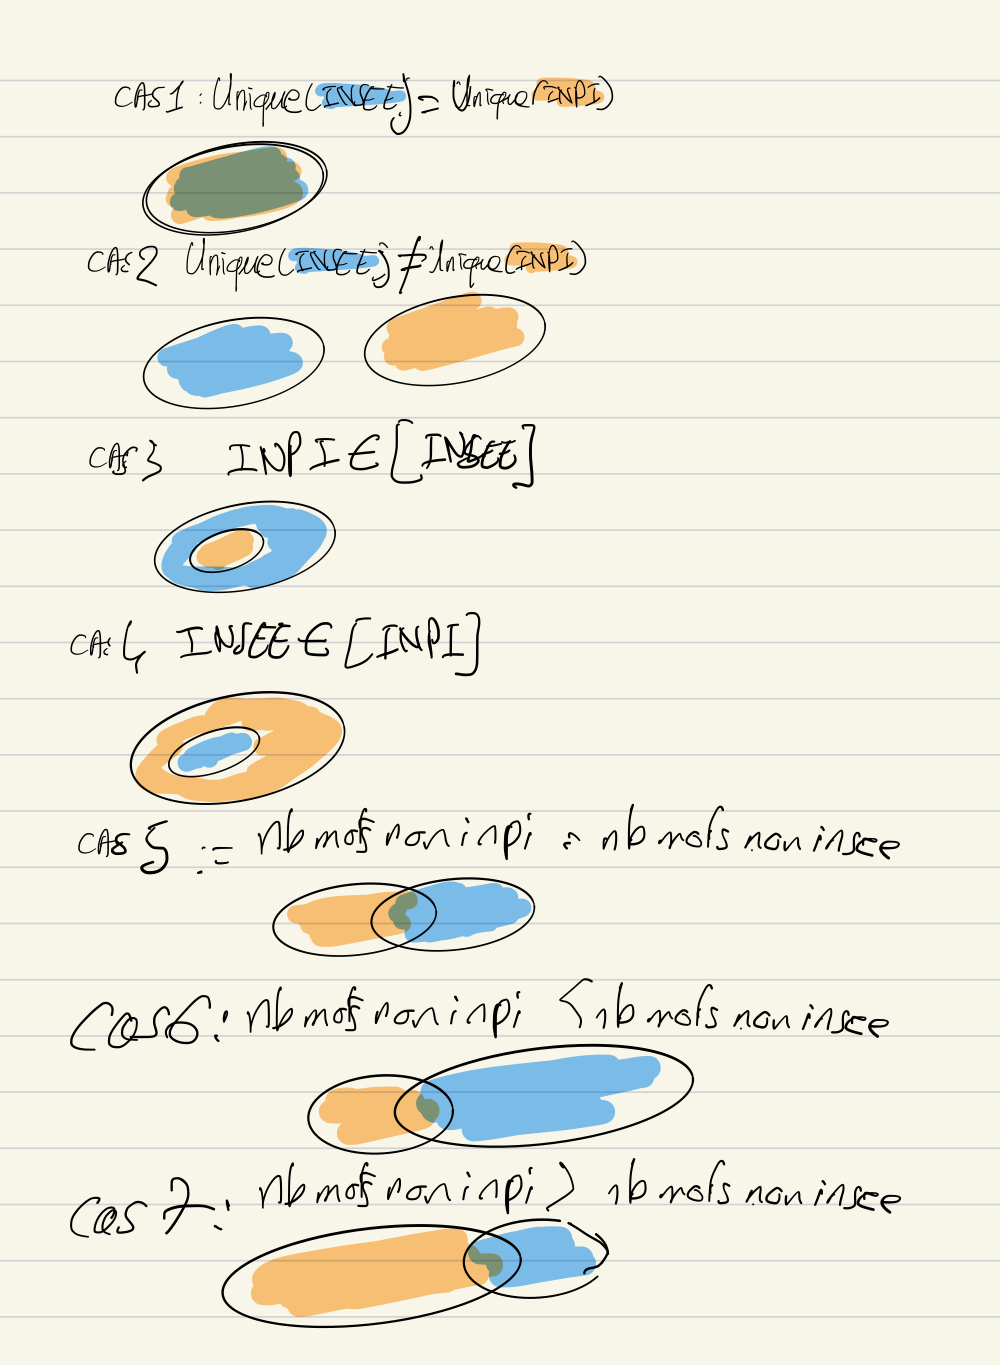 CAS 1 : Unique(INSEE) = Unique(INPI)
CAS 2 Unique(INSEE) ≠ Unique(INPI)
CAS 3 INPI ∈ [INSEE]
CAS 4 INSEE ∈ [INPI]
CAS 5 := nb mots non inpi = nb mots non insee
Cas 6 : nb mots non inpi < nb mots non insee
Cas 7 : nb mots non inpi > nb mots non insee